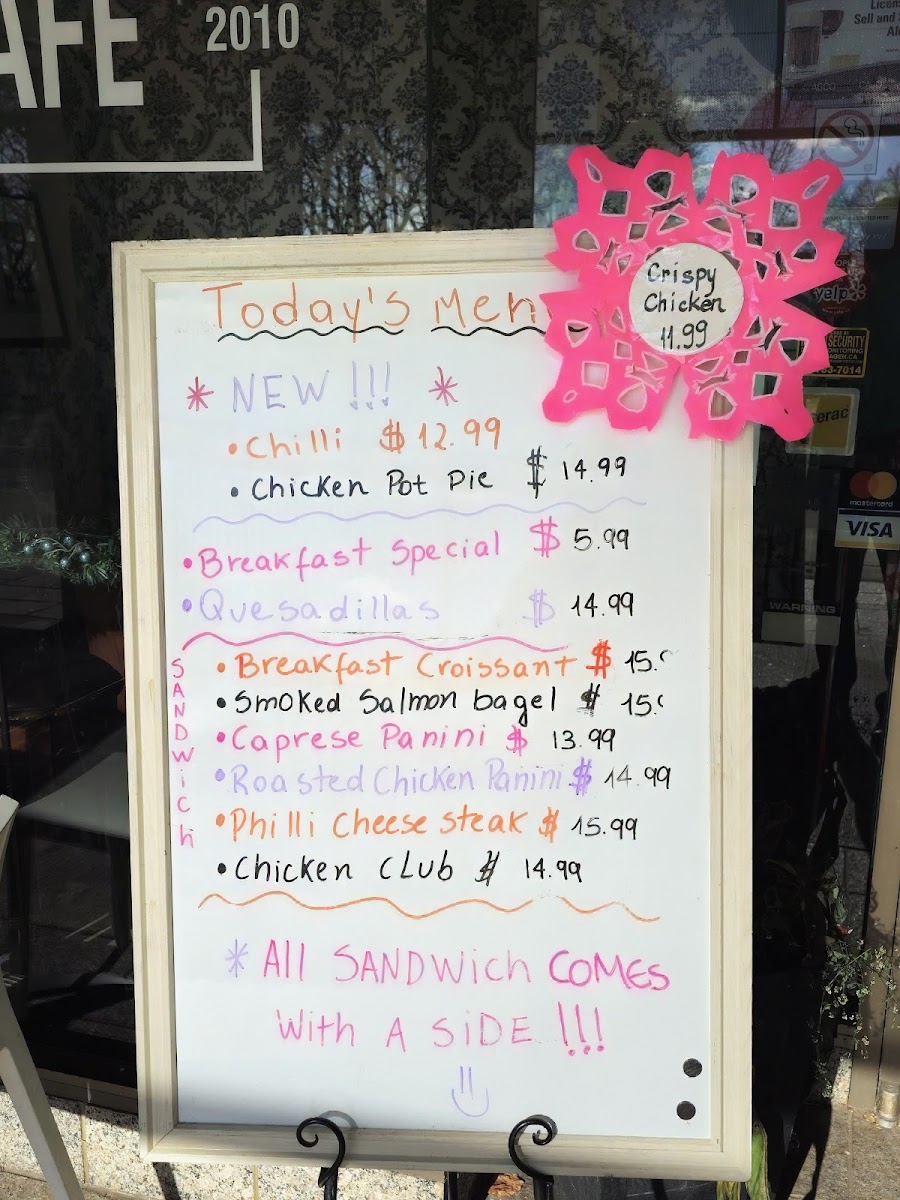 AFE
2010
Today's Men
Crispy
Chicken
11.99
* NEW !!! *
• Chilli $ 12.99
• Chicken Pot Pie $ 14.99
• Breakfast Special $ 5.99
• Quesadillas $ 14.99
SANDWich
• Breakfast Croissant $ 15.
• Smoked Salmon bagel $ 15.
• Caprese Panini $ 13.99
• Roasted Chicken Panini $ 14.99
• Philli Cheese steak $ 15.99
• Chicken CLub $ 14.99
* All SANDWich COMES
With A SiDE !!!
Sell and
yelp
SECURITY
mastercard
VISA
WARNING